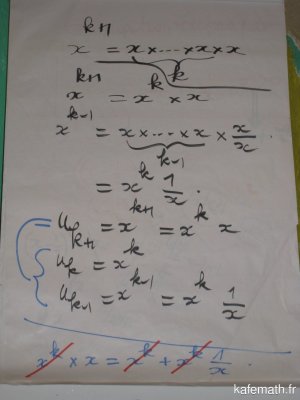 x^{k+1} = x × ... × x × x
k
x^{k+1} = x^k × x
x^{k-1} = x × ... × x × x/x
k-1
= x^k 1/x .
u_{k+1} = x^{k+1} = x^k x
u_k = x^k
u_{k-1} = x^{k-1} = x^k 1/x
x^k × x = x^k + x^k 1/x .
kafemath.fr